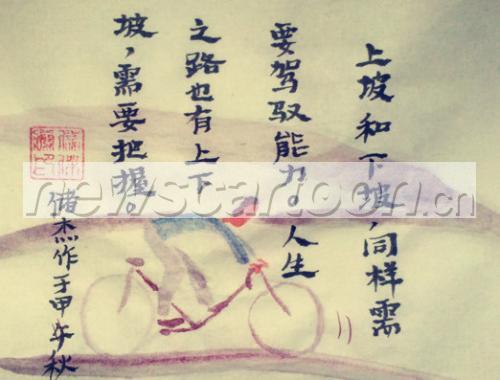 上坡和下坡,同样需
要驾驭能力。人生
之路也有上下
坡,需要把握。
储杰作于甲午秋
newscartoon.cn